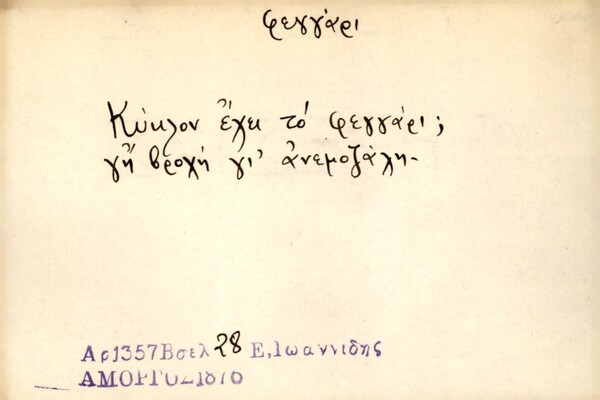 φεγγάρι
Κύκλον ἔχει τό φεγγάρι;
γἤ βροχή γι' ἀνεμοζάλη-
Αρ1357Βσελ 28 Ε,Ιωαννιδης
ΑΜΟΡΓΟΣ1876